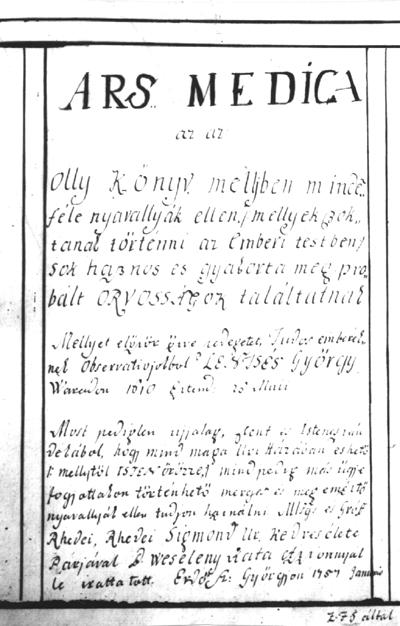 ARS MEDICA
az az
Olly Könyv melljben minde=
féle nyavallyák ellen, mellyek szok=
tanak törtenni az Emberi testben,
sok haznos es gyakorta meg pro=
bált ORVOSSÁGOK találtatnak
Mellyet először öszve szedegetet, Tudos emberek=
nek Observatiojokbol LENTSES György
Váradon 1610 Eztend: 25 Maii
Most pediglen ujjalag, szent es Istenes szán
dekábol, hogy mind maga Úri Házában eshető
mellytöl ISTEN ÖRIZZE, mindpedig más ügye
fogyattakon történhető merges es meg emésztő
nyavallyák ellen tudjon használni Mlsgs es Groff
Rhedei, Rhedei Sigmond Ur. kedves élete
Párjával B Weseleny Kata Asszonnyal
le irattatott. Erdő Sz: Györgyön 1757 Januar
Z. 75 által